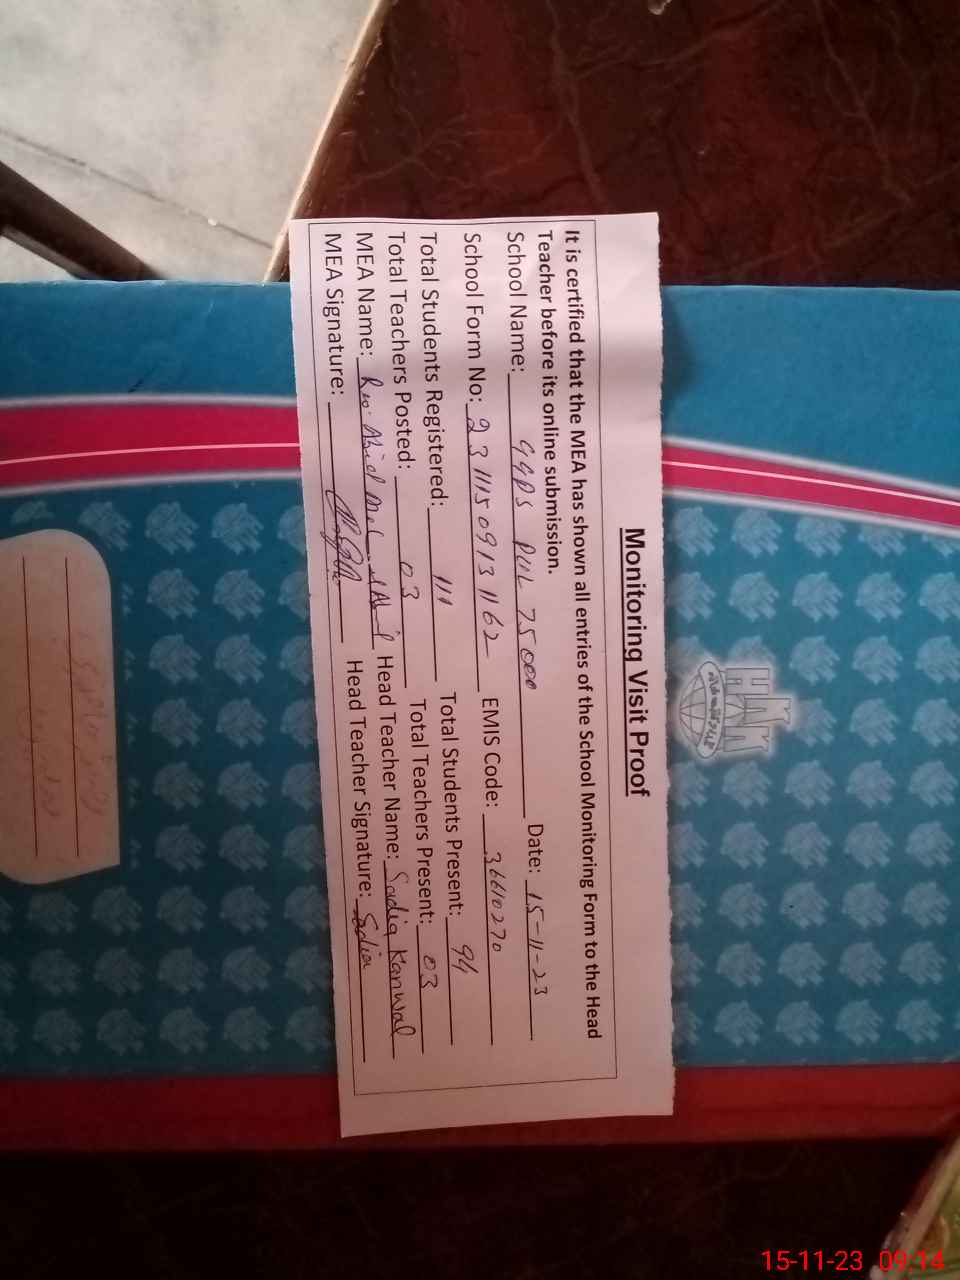 Monitoring Visit Proof
It is certified that the MEA has shown all entries of the School Monitoring Form to the Head
Teacher before its online submission.
School Name: GGPS PUL 25000 Date: 15-11-23
School Form No: 23111509131162 EMIS Code: 36610270
Total Students Registered: 111 Total Students Present: 94
Total Teachers Posted: 03 Total Teachers Present: 03
MEA Name: Abid Head Teacher Name: Sadia Kanwal
MEA Signature: Head Teacher Signature: Sadia
15-11-23 09:14